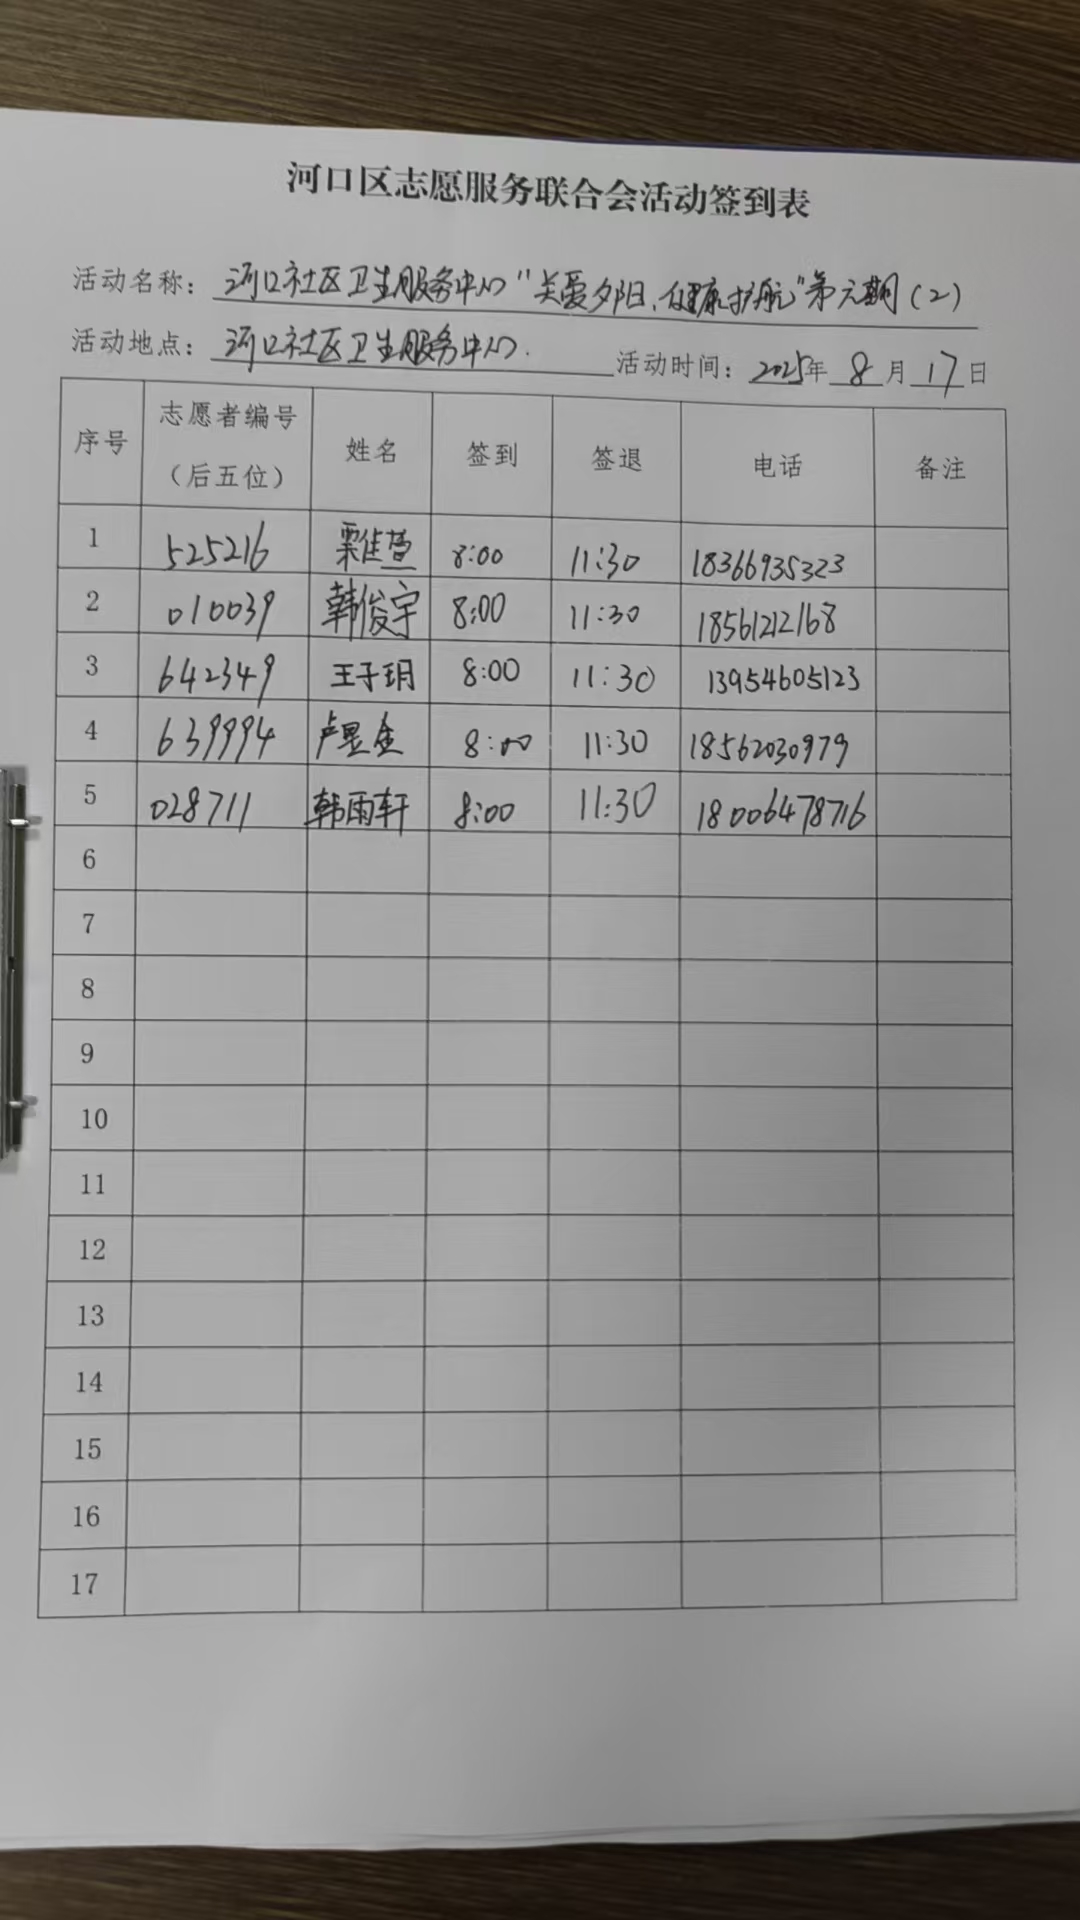 河口区志愿服务联合会活动签到表
活动名称：河口社区卫生服务中心“关爱夕阳、健康护航”第六期(2)
活动地点：河口社区卫生服务中心. 活动时间：2025年 8 月 17 日
序号 志愿者编号（后五位） 姓名 签到 签退 电话 备注
1 525216 8:00 11:30 18366935323
2 010039 韩俊宇 8:00 11:30 18561212168
3 642349 王子玥 8:00 11:30 13954605123
4 639994 卢昱金 8:00 11:30 18562030979
5 028711 韩雨轩 8:00 11:30 18006478716
6
7
8
9
10
11
12
13
14
15
16
17